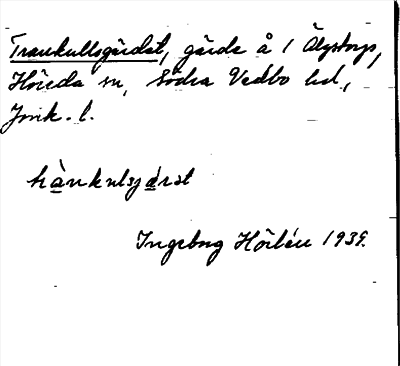 Trankullsgärdet, gärde å 1 Älgstorp,
Höreda sn, Södra Vedbo hd,
Jönk. l.
trànkulsjæ̀rdt
Ingeborg Hörlén 1939.